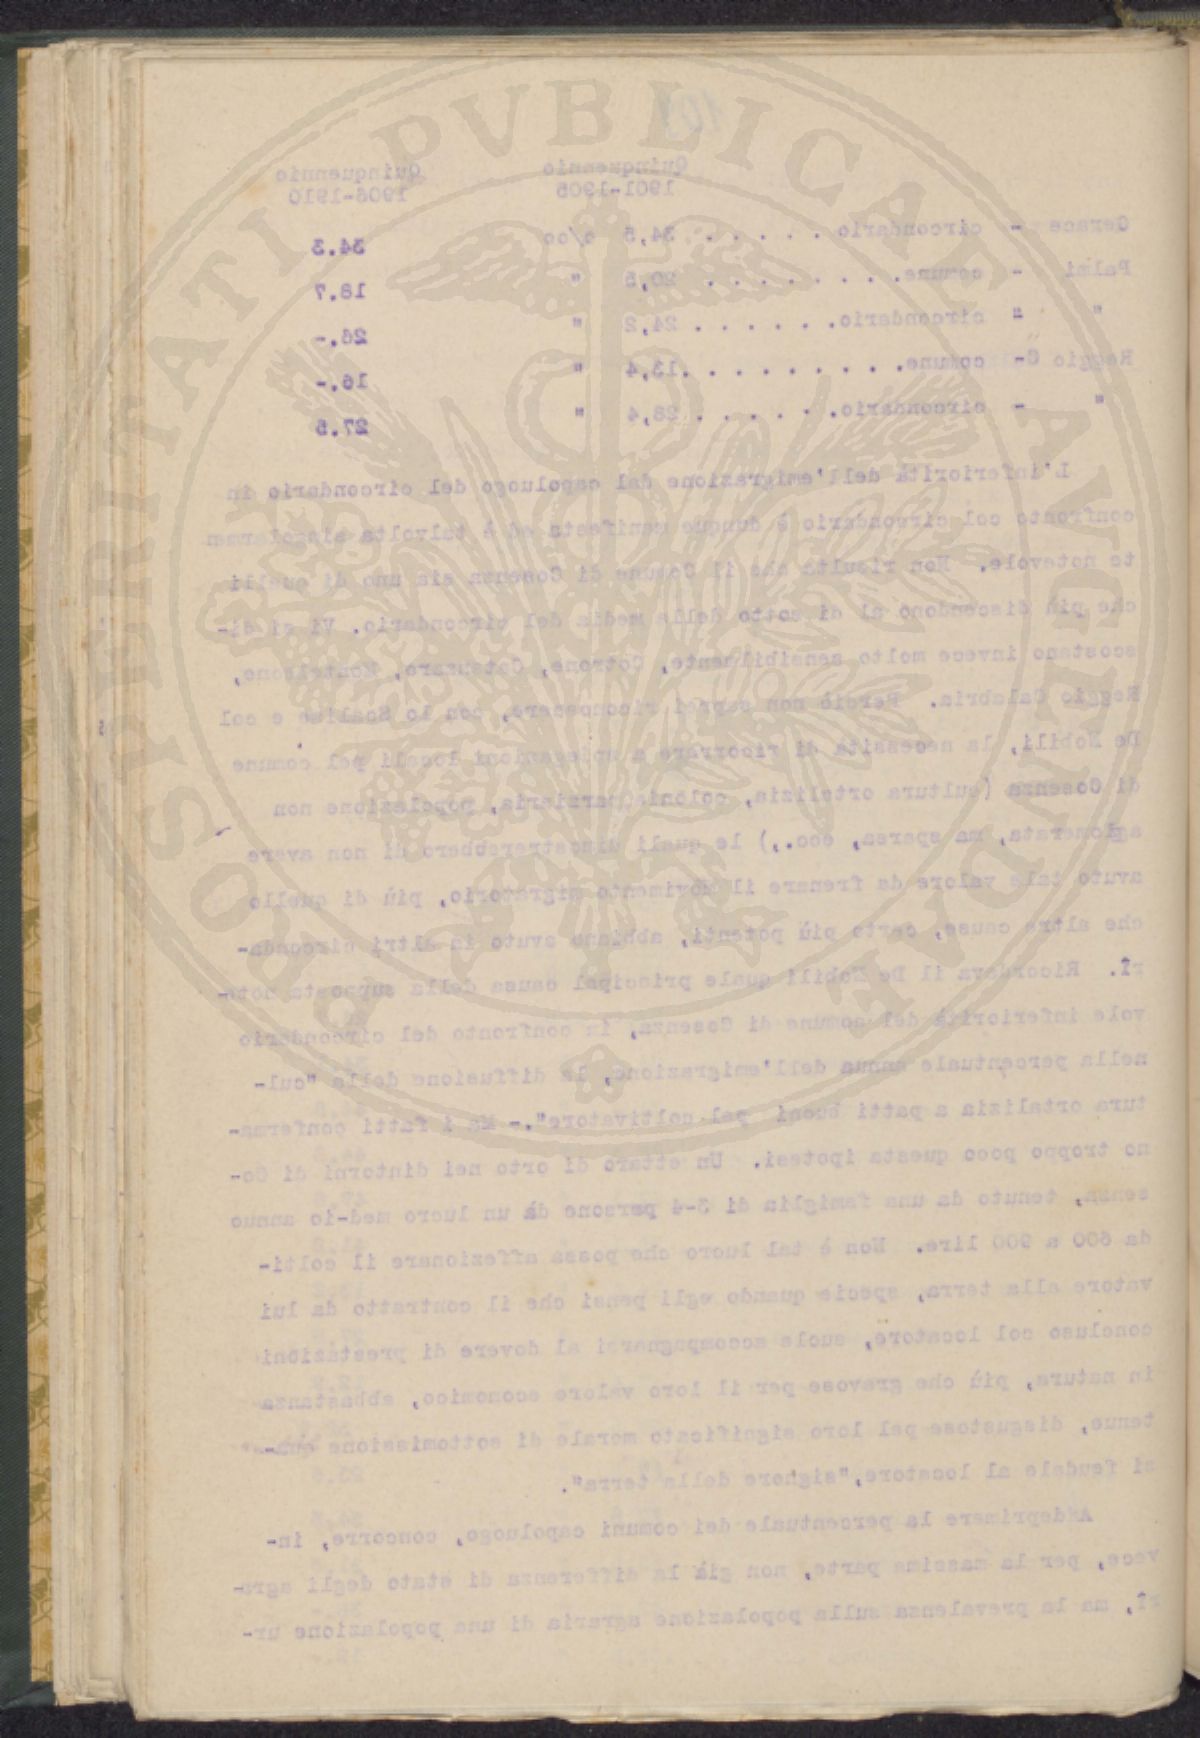 103
Quinquennio Quinquennio
1901-1905 1906-1910
Gerace - circondario . . . . . . 34,5 o/oo 34.3
Palmi - comune. . . . . . . . . 20,5 " 18.7
" " circondario. . . . . . . 24,2 " 26.-
Reggio C- comune. . . . . . . . . .13,4 " 16.-
" - circondario. . . . . . 28,4 " 27.5
L'inferiorità dell'emigrazione dal capoluogo del circondario in
confronto col circondario è dunque manifesta ed è talvolta singolarmen
te notevole. Non risulta che il Comune di Cosenza sia uno di quelli
che più discendono al di sotto della media del circondario. Vi si di-
scostano invece molto sensibilmente, Cotrone, Catanzaro, Monteleone,
Reggio Calabria. Perciò non saprei riconoscere, con lo Scalise e col
De Nobili, la necessità di ricorrere a spiegazioni locali pel comune
di Cosenza (cultura ortalizia, colonia parziaria, popolazione non
aglomerata, ma sparsa, ecc.,) le quali dimostrerebbero di non avere
avuto tale valore da frenare il Movimento migratorio, più di quello
che altre cause, certo più potenti, abbiano avuto in altri circonda-
rî. Ricordava il De Nobili quale principal causa della supposta note-
vole inferiorità del comune di Cosenza, in confronto del circondario
nella percentuale annua dell'emigrazione, la diffusione della "cul-
tura ortalizia a patti buoni pel coltivatore".- Ma i fatti conferma-
no troppo poco questa ipotesi. Un ettaro di orto nei dintorni di Co-
senza, tenuto da una famiglia di 3-4 persone dà un lucro med-io annuo
da 600 a 900 lire. Non è tal lucro che possa affezionare il colti-
vatore alla terra, specie quando egli pensi che il contratto da lui
concluso col locatore, suole accompagnarsi al dovere di prestazioni
in natura, più che gravose per il loro valore economico, abbastanza
tenue, disgustose pel loro significato morale di sottomissione qua-
si feudale al locatore,"signore della terra".
A deprimere la percentuale dei comuni capoluogo, concorre, in-
vece, per la massima parte, non già la differenza di stato degli agra-
rî, ma la prevalenza sulla popolazione agraria di una popolazione ur-
PROSPERITATI PVBLICAE AVGENDAE